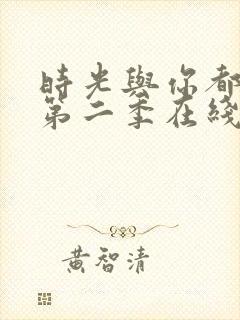 時光與你都
第二季在綫
黃智清